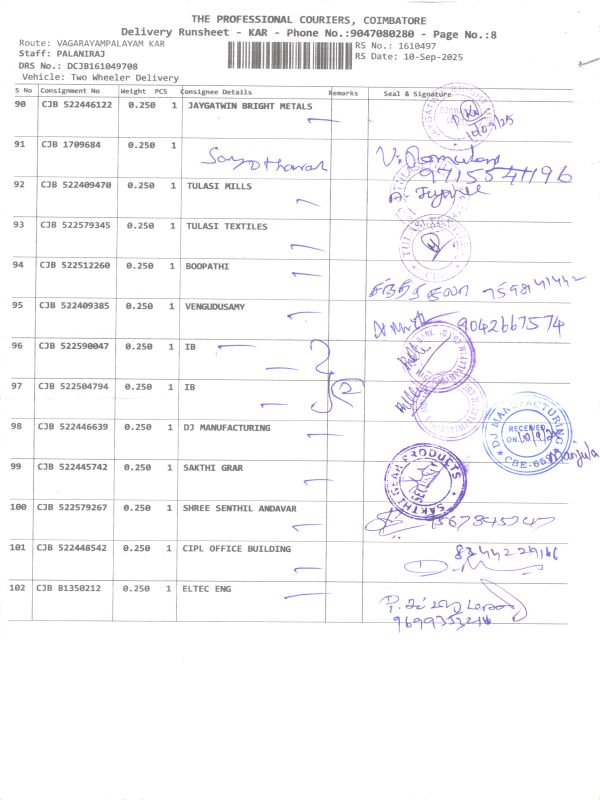 THE PROFESSIONAL COURIERS, COIMBATORE
Delivery Runsheet - KAR - Phone No.:9047080280 - Page No.:8
Route: VAGARAYAMPALAYAM KAR RS No.: 1610497
Staff: PALANIRAJ RS Date: 10-Sep-2025
DRS No.: DCJB161049708
Vehicle: Two Wheeler Delivery
S No Consignment No Weight PCS Consignee Details Remarks Seal & Signature
90 CJB 522446122 0.250 1 JAYGATWIN BRIGHT METALS
10/09/25
91 CJB 1709684 0.250 1
9715541196
92 CJB 522409470 0.250 1 TULASI MILLS
93 CJB 522579345 0.250 1 TULASI TEXTILES
94 CJB 522512260 0.250 1 BOOPATHI
95 CJB 522409385 0.250 1 VENGUDUSAMY
9042667574
96 CJB 522590047 0.250 1 IB
97 CJB 522504794 0.250 1 IB
2
98 CJB 522446639 0.250 1 DJ MANUFACTURING
DJ MANUFACTURING
RECEIVED
ON
Manjula
99 CJB 522445742 0.250 1 SAKTHI GRAR
SAKTHI GEAR PRODUCTS
SECURITY
100 CJB 522579267 0.250 1 SHREE SENTHIL ANDAVAR
101 CJB 522448542 0.250 1 CIPL OFFICE BUILDING
102 CJB 81350212 0.250 1 ELTEC ENG